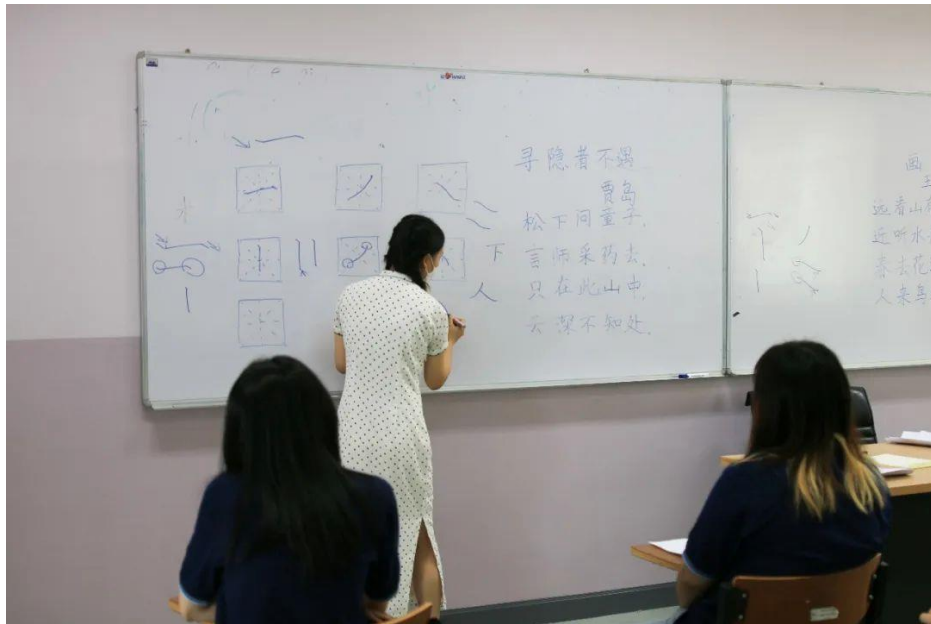 水
下
人
寻隐者不遇
贾岛
松下问童子,
言师采药去,
只在此山中,
云深不知处.
画
远看山
近听水
春去花
人来鸟